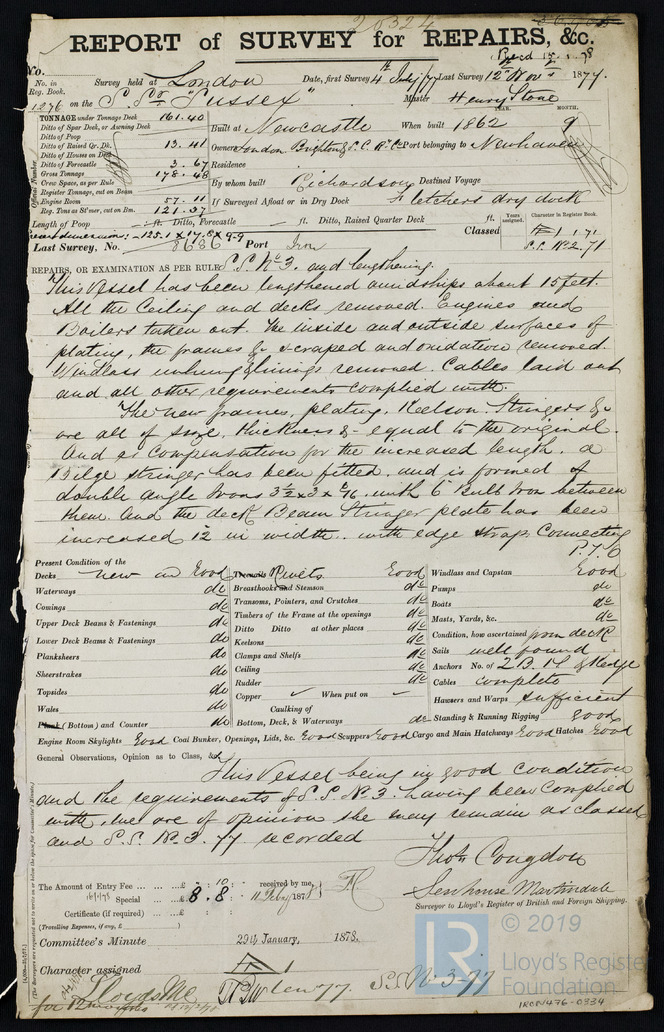 26324
REPORT of SURVEY for REPAIRS, &c.
No.
No. in Reg. Book.
Survey held at London Date, first Survey 4th July/77 Last Survey 12th Novr 1877.
1276 on the S. Sr. "Sussex" Master Henry Stone
YEAR. MONTH.
TONNAGE under Tonnage Deck 161.40
Ditto of Spar Deck, or Awning Deck
Ditto of Poop
Ditto of Raised Qr. Dk. 13.41
Ditto of Houses on Deck
Ditto of Forecastle 3.67
Gross Tonnage 178.48
Crew Space, as per Rule
Register Tonnage, out on Beam
Engine Room 57.11
Reg. Tons as St'mer, cut on Bm. 121.37
Official Number
Built at Newcastle When built 1862 9
Owners London Brighton & S. C. Ry Co Port belonging to Newhaven
Residence
By whom built Richardson Destined Voyage
If Surveyed Afloat or in Dry Dock Fletchers dry dock
Length of Poop ft. Ditto, Forecastle ft. Ditto, Raised Quarter Deck ft.
Years assigned. Character in Register Book.
Classed 1.71
S.S. No 2.71
dimensions:- 125.1 x 17.8 x 9.9
Last Survey, No. 8686 Port Iron
REPAIRS, OR EXAMINATION AS PER RULE S.S. No 3. and lengthening.
This Vessel has been lengthened amidships about 15 feet.
All the Ceiling and decks removed. Engines and
Boilers taken out. The inside and outside surfaces of
plating, the frames &c scraped and oxidation removed.
Windlass unhung & linings removed. Cables laid out
and all other requirements complied with.
The new frames, plating, Keelson, Stringers &c
are all of size, thickness &c equal to the original.
And as compensation for the increased length, a
Bilge stringer has been fitted, and is formed of
double angle Irons 3½ x 3 x 6/16, with 6" Bulb Iron between
them. And the deck Beam Stringer plate has been
increased 12 in width, with edge strap connecting
P.T.O
Present Condition of the
Decks new and Good
Waterways do
Comings do
Upper Deck Beams & Fastenings do
Lower Deck Beams & Fastenings do
Planksheers do
Sheerstrakes do
Topsides do
Wales do
Plank (Bottom) and Counter do
Treenails Rivets Good
Breasthooks and Stemson do
Transoms, Pointers, and Crutches do
Timbers of the Frame at the openings do
Ditto Ditto at other places do
Keelsons do
Clamps and Shelfs do
Ceiling do
Rudder do
Copper When put on
Caulking of
Bottom, Deck, & Waterways do
Windlass and Capstan Good
Pumps do
Boats do
Masts, Yards, &c. do
Condition, how ascertained from deck
Sails well found
Anchors No. of 2 B. 1 S. & Kedge
Cables complete
Hawsers and Warps sufficient
Standing & Running Rigging Good
Engine Room Skylights Good Coal Bunker, Openings, Lids, &c. Good Scuppers Good Cargo and Main Hatchways Good Hatches Good
General Observations, Opinion as to Class, &c.
This Vessel being in good condition
and the requirements of S.S. No 3. having been complied
with, we are of opinion she may remain as classed
and S.S. No 3. 77 recorded
Thos Congdon
Senhouse Martindale
Surveyor to Lloyd's Register of British and Foreign Shipping.
The Amount of Entry Fee £ : 10 : received by me,
Special £ 8 . 8 :
Certificate (if required) £ : :
(Travelling Expenses, if any, £ )
Committee's Minute 29th January, 1878.
Character assigned
S.S. No 3-77
Lloyds MC
© 2019
LR
Lloyd's Register
Foundation
IRON476-0334